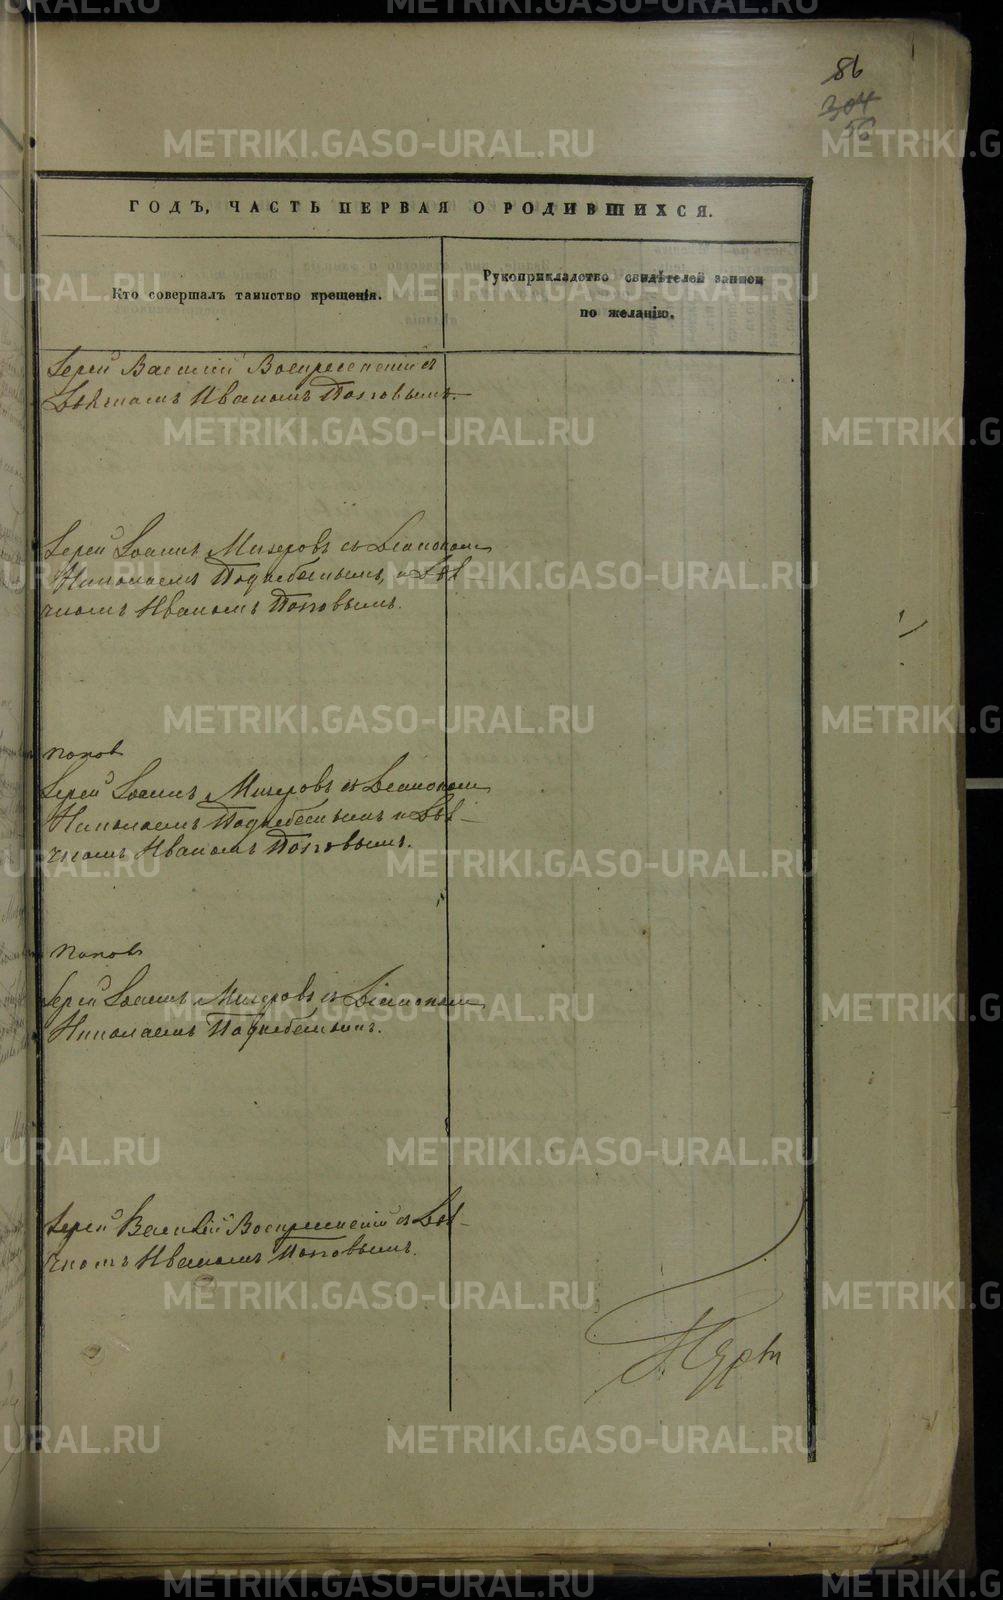 86
304
56
ГОДЪ, ЧАСТЬ ПЕРВАЯ О РОДИВШИХСЯ.
Кто совершалъ таинство крещенія.
Рукоприкладство свидѣтелей записи
по желанію.
Іерей Василій Воскресенскій съ
Дьячкомъ Иваномъ Поповымъ.
Іерей Іоаннъ Мизеровъ съ Діакономъ
Николаемъ Поднебеснымъ, и Дья-
чкомъ Иваномъ Поповымъ.
Попов
Іерей Іоаннъ Мизеровъ съ Діакономъ
Николаемъ Поднебеснымъ и Дья-
чкомъ Иваномъ Поповымъ.
Попов
Іерей Іоаннъ Мизеровъ съ Діакономъ
Николаемъ Поднебеснымъ.
Іерей Василій Воскресенскій съ Дья-
чкомъ Иваномъ Поповымъ.
METRIKI.GASO-URAL.RU